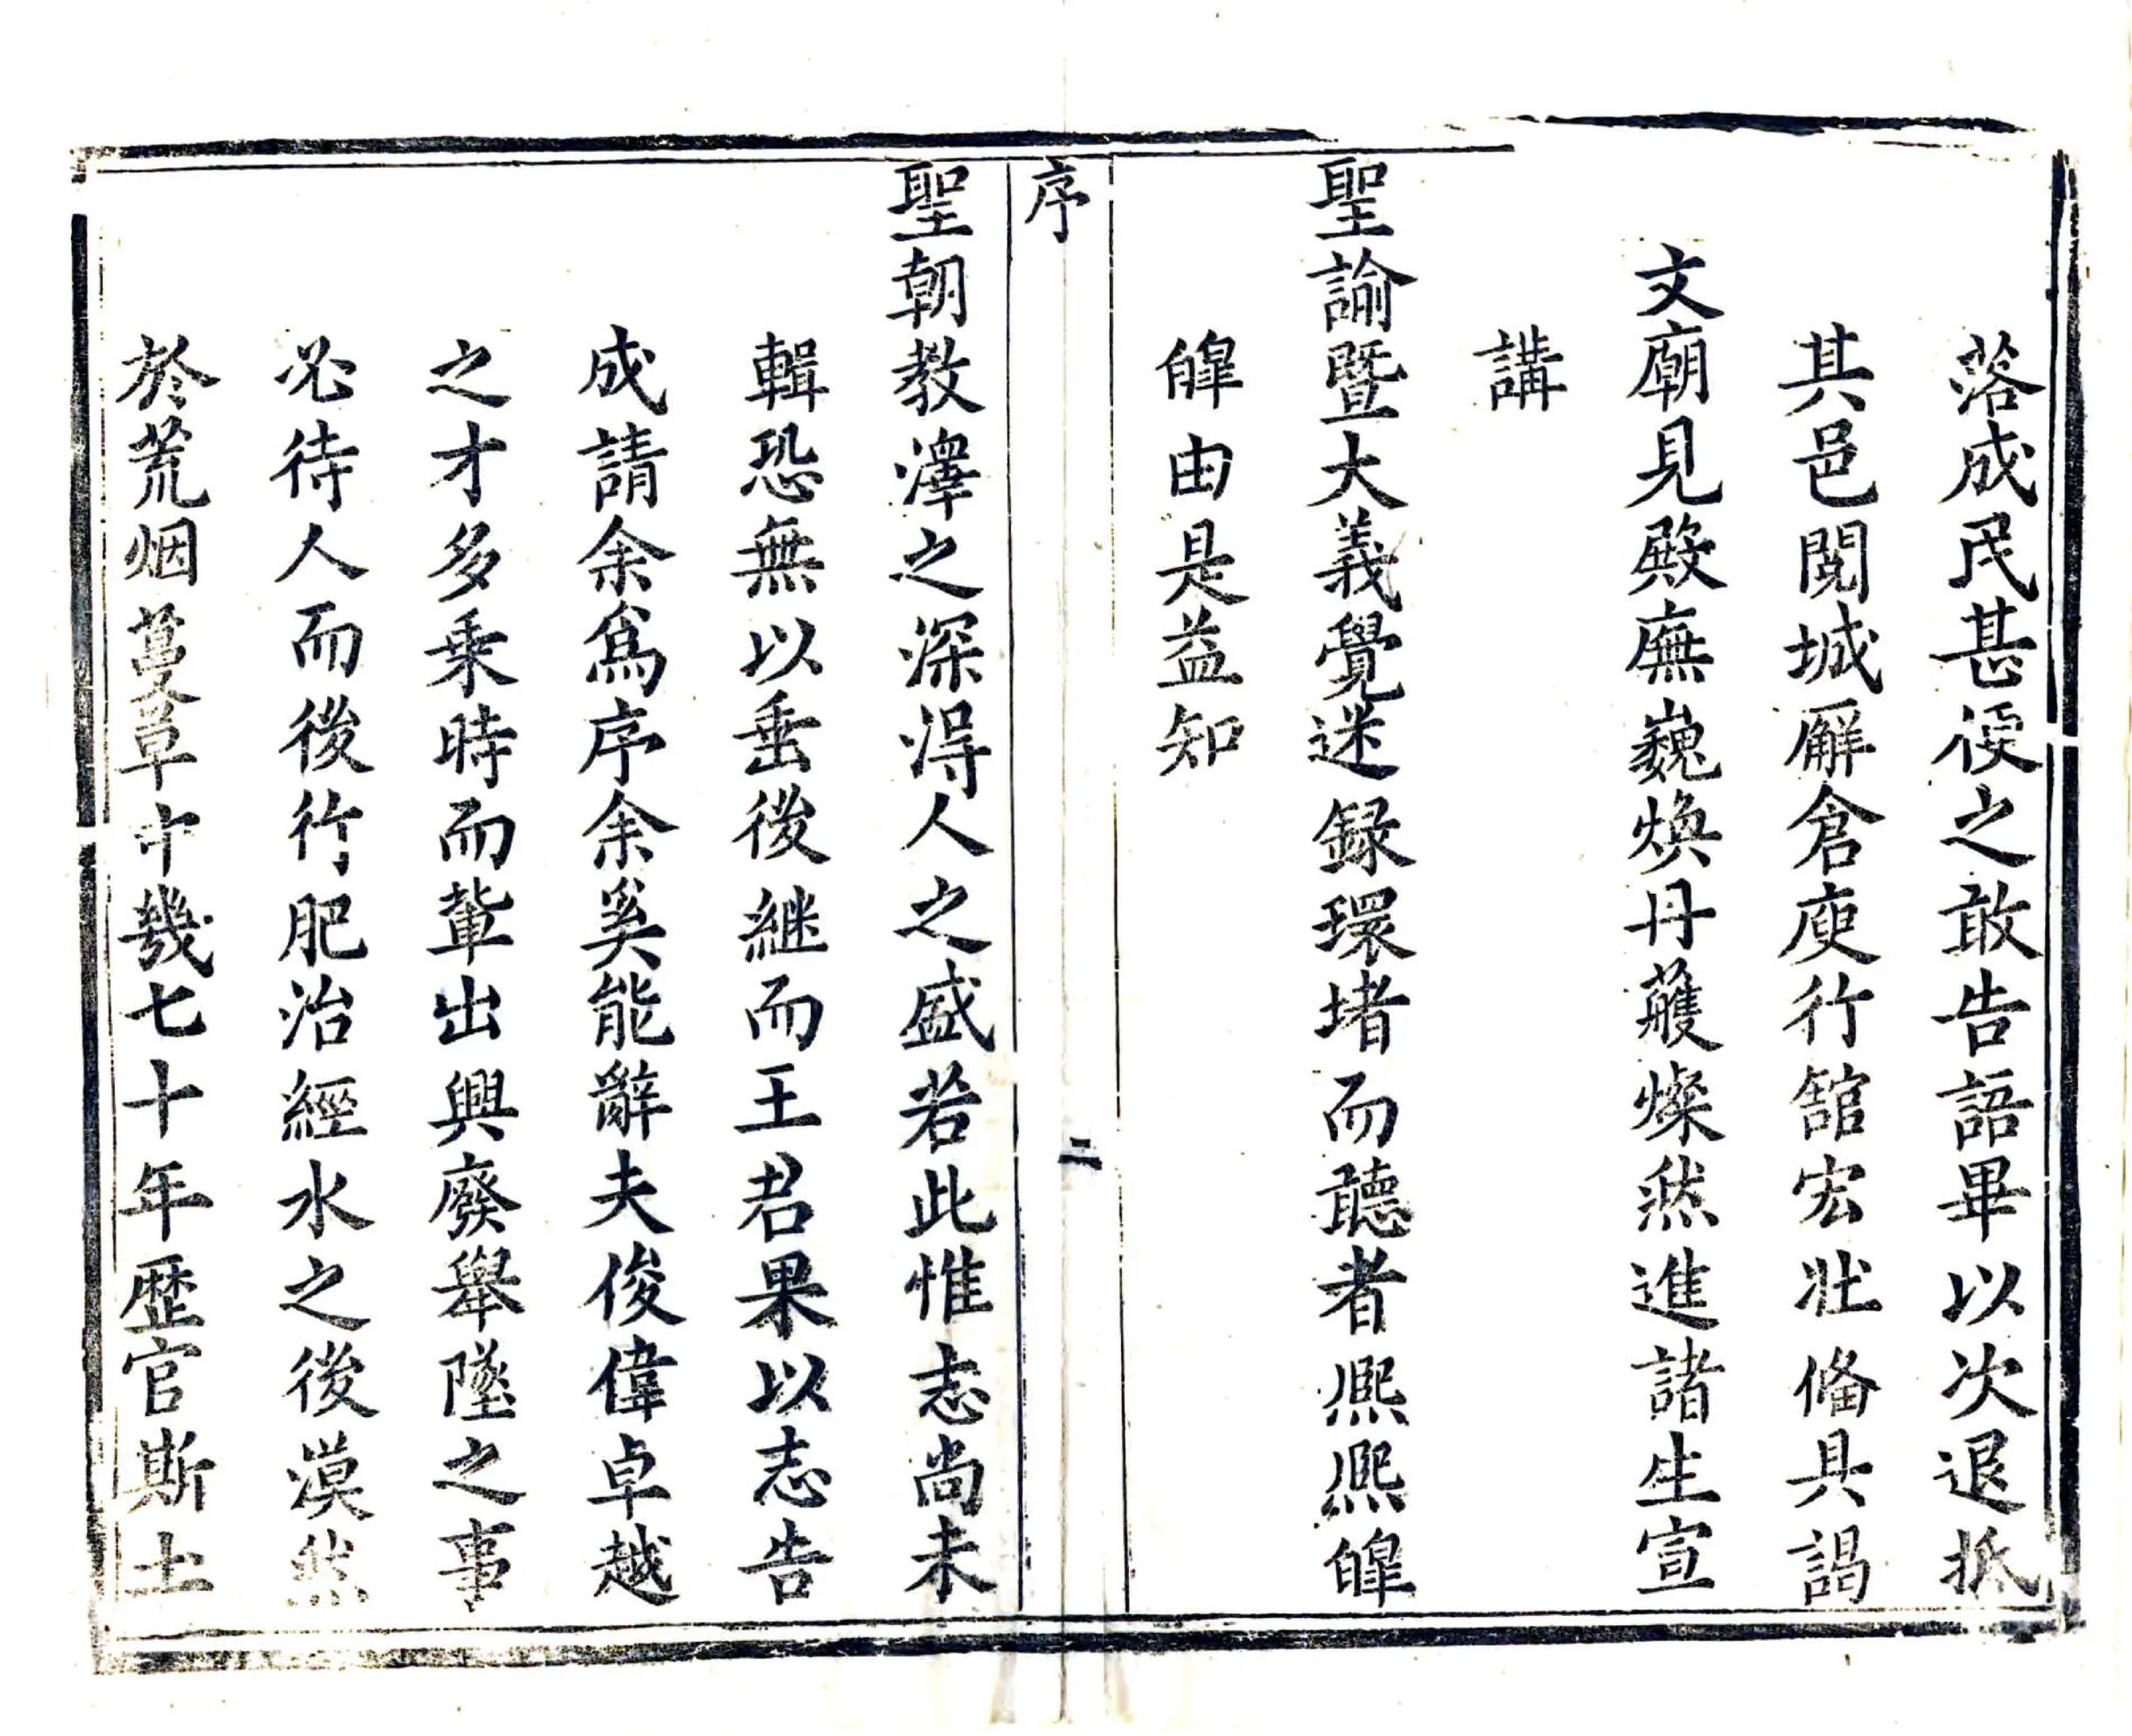 落成民甚便之敢告語畢以次退抵
其邑閱城廨倉庾行舘宏壯俻具謁
文廟見殿廡巍煥丹雘燦然進諸生宣
講
聖諭暨大義覺迷録環堵而聽者熈熈皥
皥由是益知
序
二
聖朝教澤之深淂人之盛若此惟志尚未
輯恐無以垂後継而王君果以志告
成請余為序余奚能辭夫俊偉卓越
之才多乗時而軰出興廢舉墜之事
必待人而後行肥治經水之後漠然
於荒烟蔓草中幾七十年歴官斯土